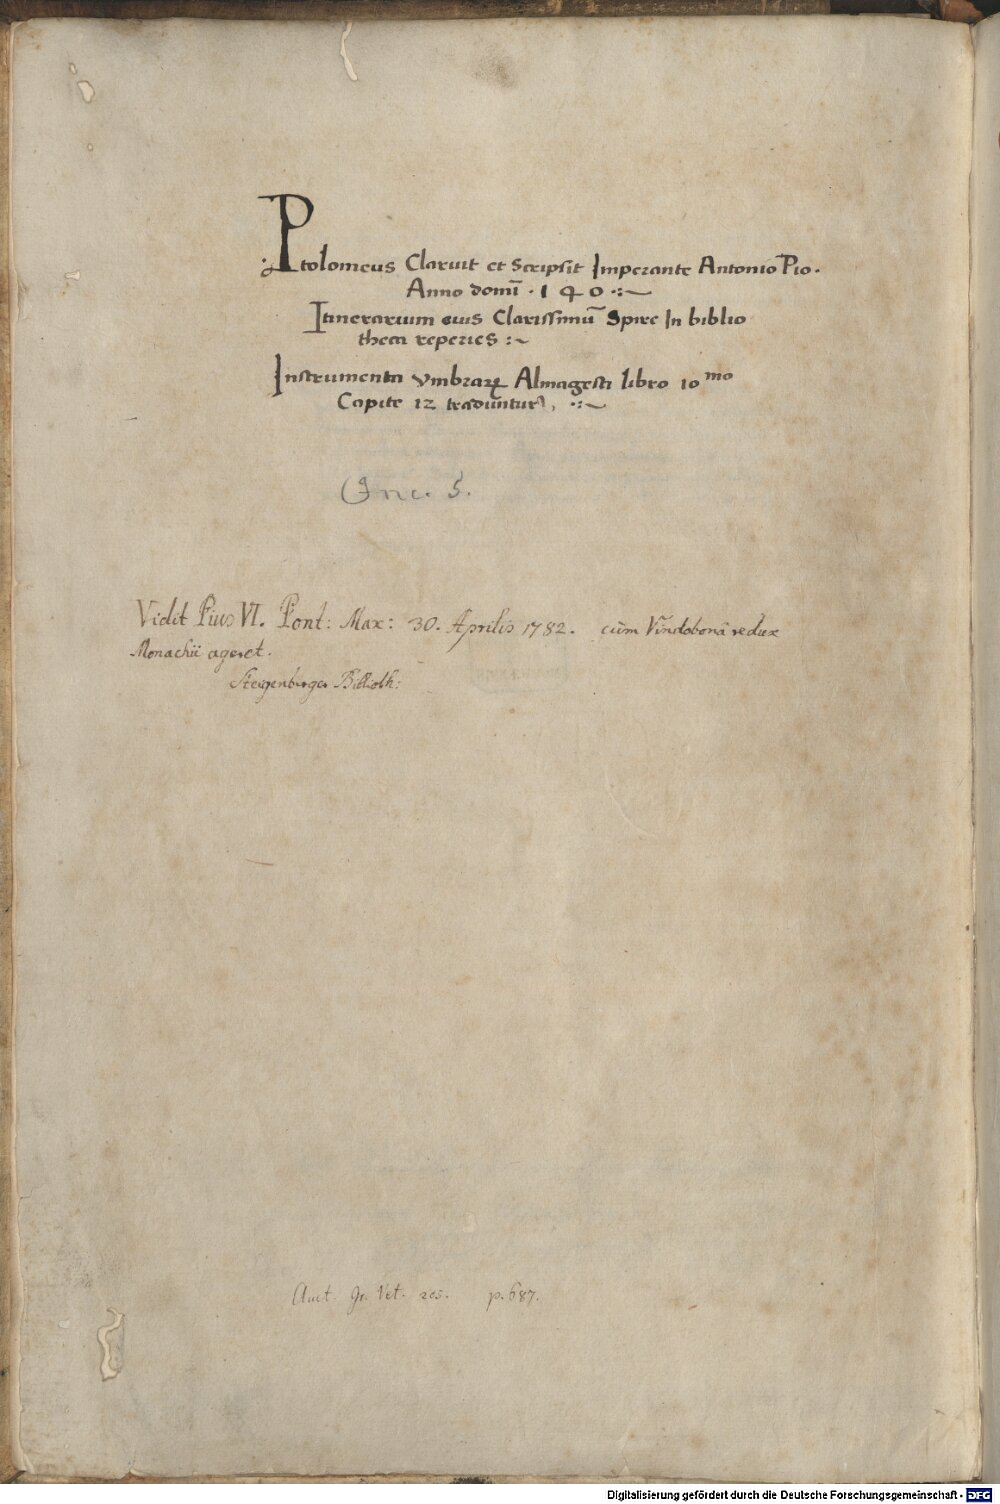 Ptolomeus Claruit et Scripsit Imperante Antonio Pio.
Anno domī . 140 .:~
Itinerarium eius Clarissimū Spire In biblio
theca reperies :~
Instrumenta vmbraꝝ Almagesti libro 10mo
Capite 12 traduntur, .:~
Inc. 5.
Vidit Pius VI. Pont: Max: 30. Aprilis 1782. cùm Vindobonâ redux
Monachii ageret.
Steigenberger Biblioth:
Auct. Gr. Vet. 205. p. 687.
Digitalisierung gefördert durch die Deutsche Forschungsgemeinschaft - DFG